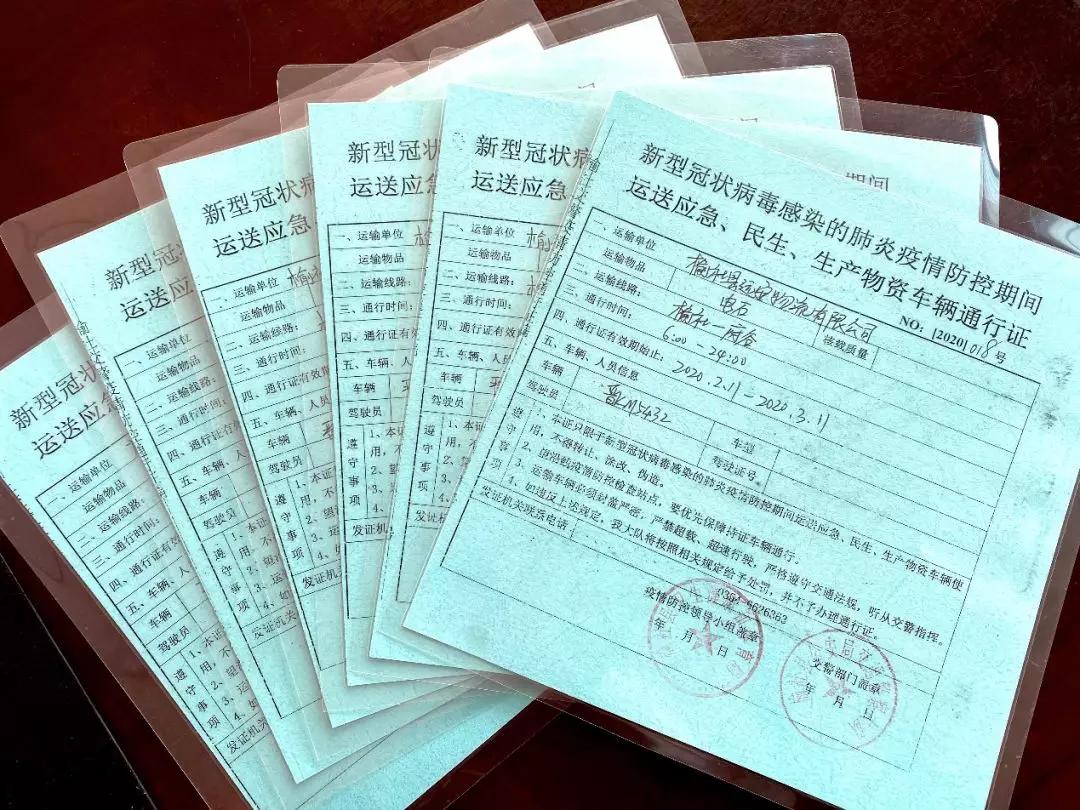 新型冠状病毒感染的肺炎疫情防控期间
运送应急、民生、生产物资车辆通行证
NO: [2020]018号
一、运输单位 榆社县远安物流有限公司
运输物品 电石 核载质量
二、运输线路: 榆社—阳谷
三、通行时间: 6:00 - 24:00
四、通行证有效期始止: 2020.2.11 - 2020.3.11
五、车辆、人员信息
车辆 晋KM5432 车型
驾驶员 驾驶证号
遵守事项
1、本证只限于新型冠状病毒感染的肺炎疫情防控期间运送应急、民生、生产物资车辆使
用,不得转让、涂改、伪造。
2、望沿线疫情防控检查站点,要优先保障持证车辆通行。
3、运输车辆必须封盖严密,严禁超载、超速行驶,严格遵守交通法规,听从交警指挥。
4、如违反上述规定,我大队将按照相关规定给予处罚,并不予办理通行证。
发证机关联系电话 0354-6626363
疫情防控领导小组盖章
年 月 日
交警部门盖章
年 月 日
新型冠状
运送应急
一、运输单位
运输物品
二、运输线路:
三、通行时间:
四、通行证有效
五、车辆、人员
车辆
驾驶员
遵守事项
发证机
新型冠状
运送应急
一、运输单位
运输物品
二、运输线路:
三、通行时间:
四、通行证有效
五、车辆、人
车辆
驾驶员
遵守事项
发证机:
新型冠状
运送应急
一、运输单位
运输物品
二、运输线路:
三、通行时间:
四、通行证有效限
五、车辆、人
车辆
驾驶员
遵守事项
发证机
新型冠状
运送应急
一、运输单位
运输物品
二、运输线路:
三、通行时间:
四、通行证有效
五、车辆、人
车辆
驾驶员
遵守事项
发证机关
新型冠状
运送应急
一、运输单位
运输物品
二、运输线路:
三、通行时间:
四、通行证有效
五、车辆、人
车辆
驾驶员
遵守事项
发证机关
期间